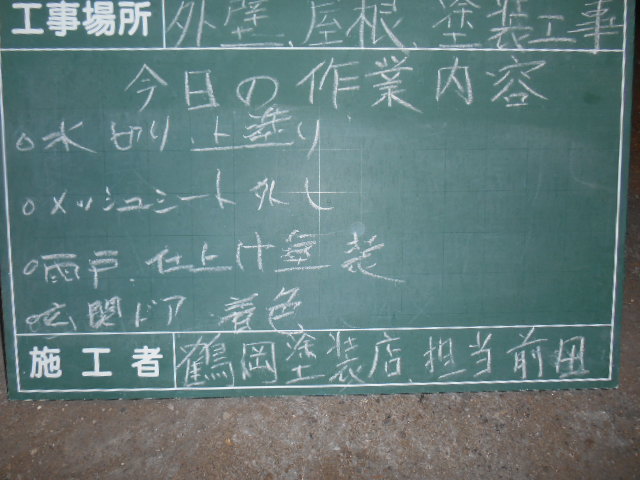 工事場所 外壁、屋根、塗装工事
今日の作業内容
○水切り、上塗り
○メッシュシート外し
○雨戸、仕上げ塗装
○玄関ドア 着色
施工者 鶴岡塗装店、担当前田